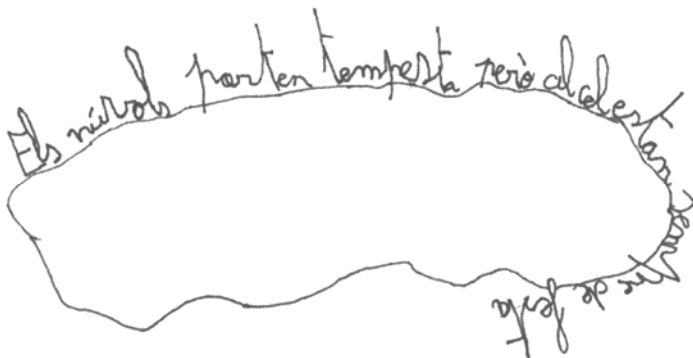 Els núvols porten tempesta però al cel estan sempre de festa